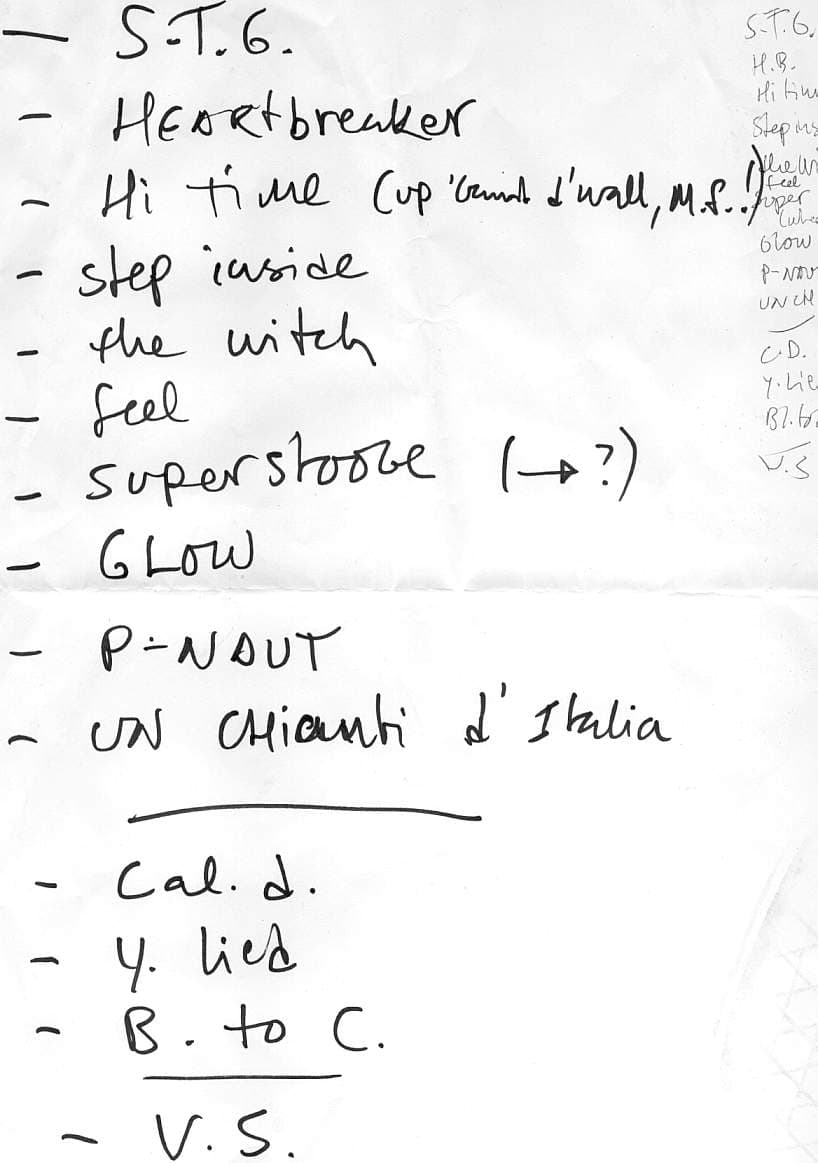 - S.T.G.
- HEARtbreaker
- Hi time (up 'gainst d'wall, M.F.!)
- step inside
- the witch
- feel
- superstooge (→?)
- GLOW
- P-NAUT
- UN CHianti d'Italia
- Cal. d.
- Y. lied
- B. to C.
- V.S.
S.T.G.
H.B.
Hi time
Step ins
the wi
feel
super
Glow
P-NAU
UN CH
C.D.
Y. Lie
Bl. to
V.S